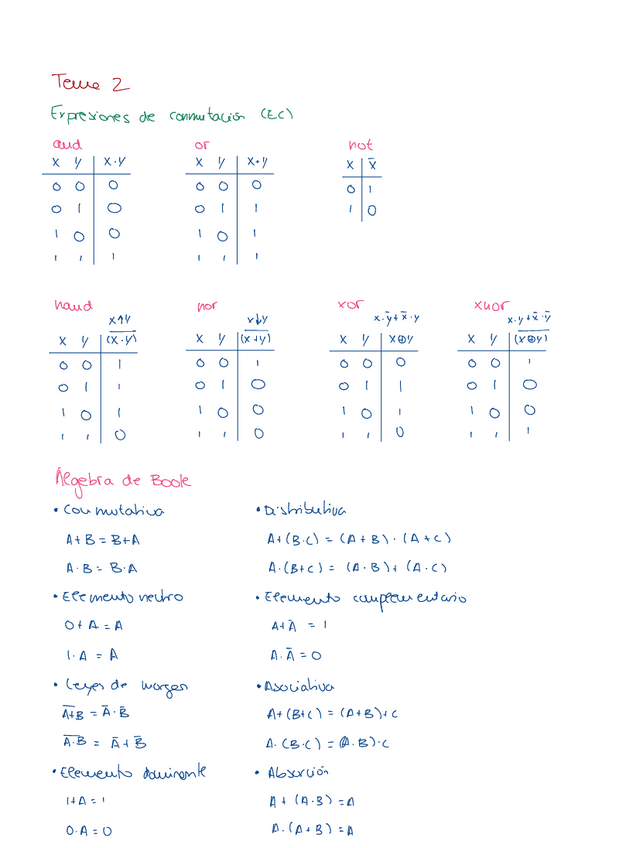 Tema 2
Expresiones de conmutación (EC)
and or not
X Y X·Y X Y X+Y X X̄
0 0 0 0 0 0 0 1
0 1 0 0 1 1 1 0
1 0 0 1 0 1
1 1 1 1 1 1
nand nor xor xnor
X↑Y X↓Y X·Ȳ+X̄·Y X·Y+X̄·Ȳ
X Y (X·Y)̅ X Y (X+Y)̅ X Y X⊕Y X Y (X⊕Y)̅
0 0 1 0 0 1 0 0 0 0 0 1
0 1 1 0 1 0 0 1 1 0 1 0
1 0 1 1 0 0 1 0 1 1 0 0
1 1 0 1 1 0 1 1 0 1 1 1
Álgebra de Boole
• Conmutativa • Distributiva
A+B = B+A A+(B·C) = (A+B)·(A+C)
A·B = B·A A·(B+C) = (A·B)+(A·C)
• Elemento neutro • Elemento complementario
0+A = A A+Ā = 1
1·A = A A·Ā = 0
• Leyes de Morgan • Asociativa
A̅+̅B̅ = Ā·B̄ A+(B+C) = (A+B)+C
A̅·̅B̅ = Ā+B̄ A·(B·C) = (A·B)·C
• Elemento dominante • Absorción
1+A = 1 A+(A·B) = A
0·A = 0 A·(A+B) = A